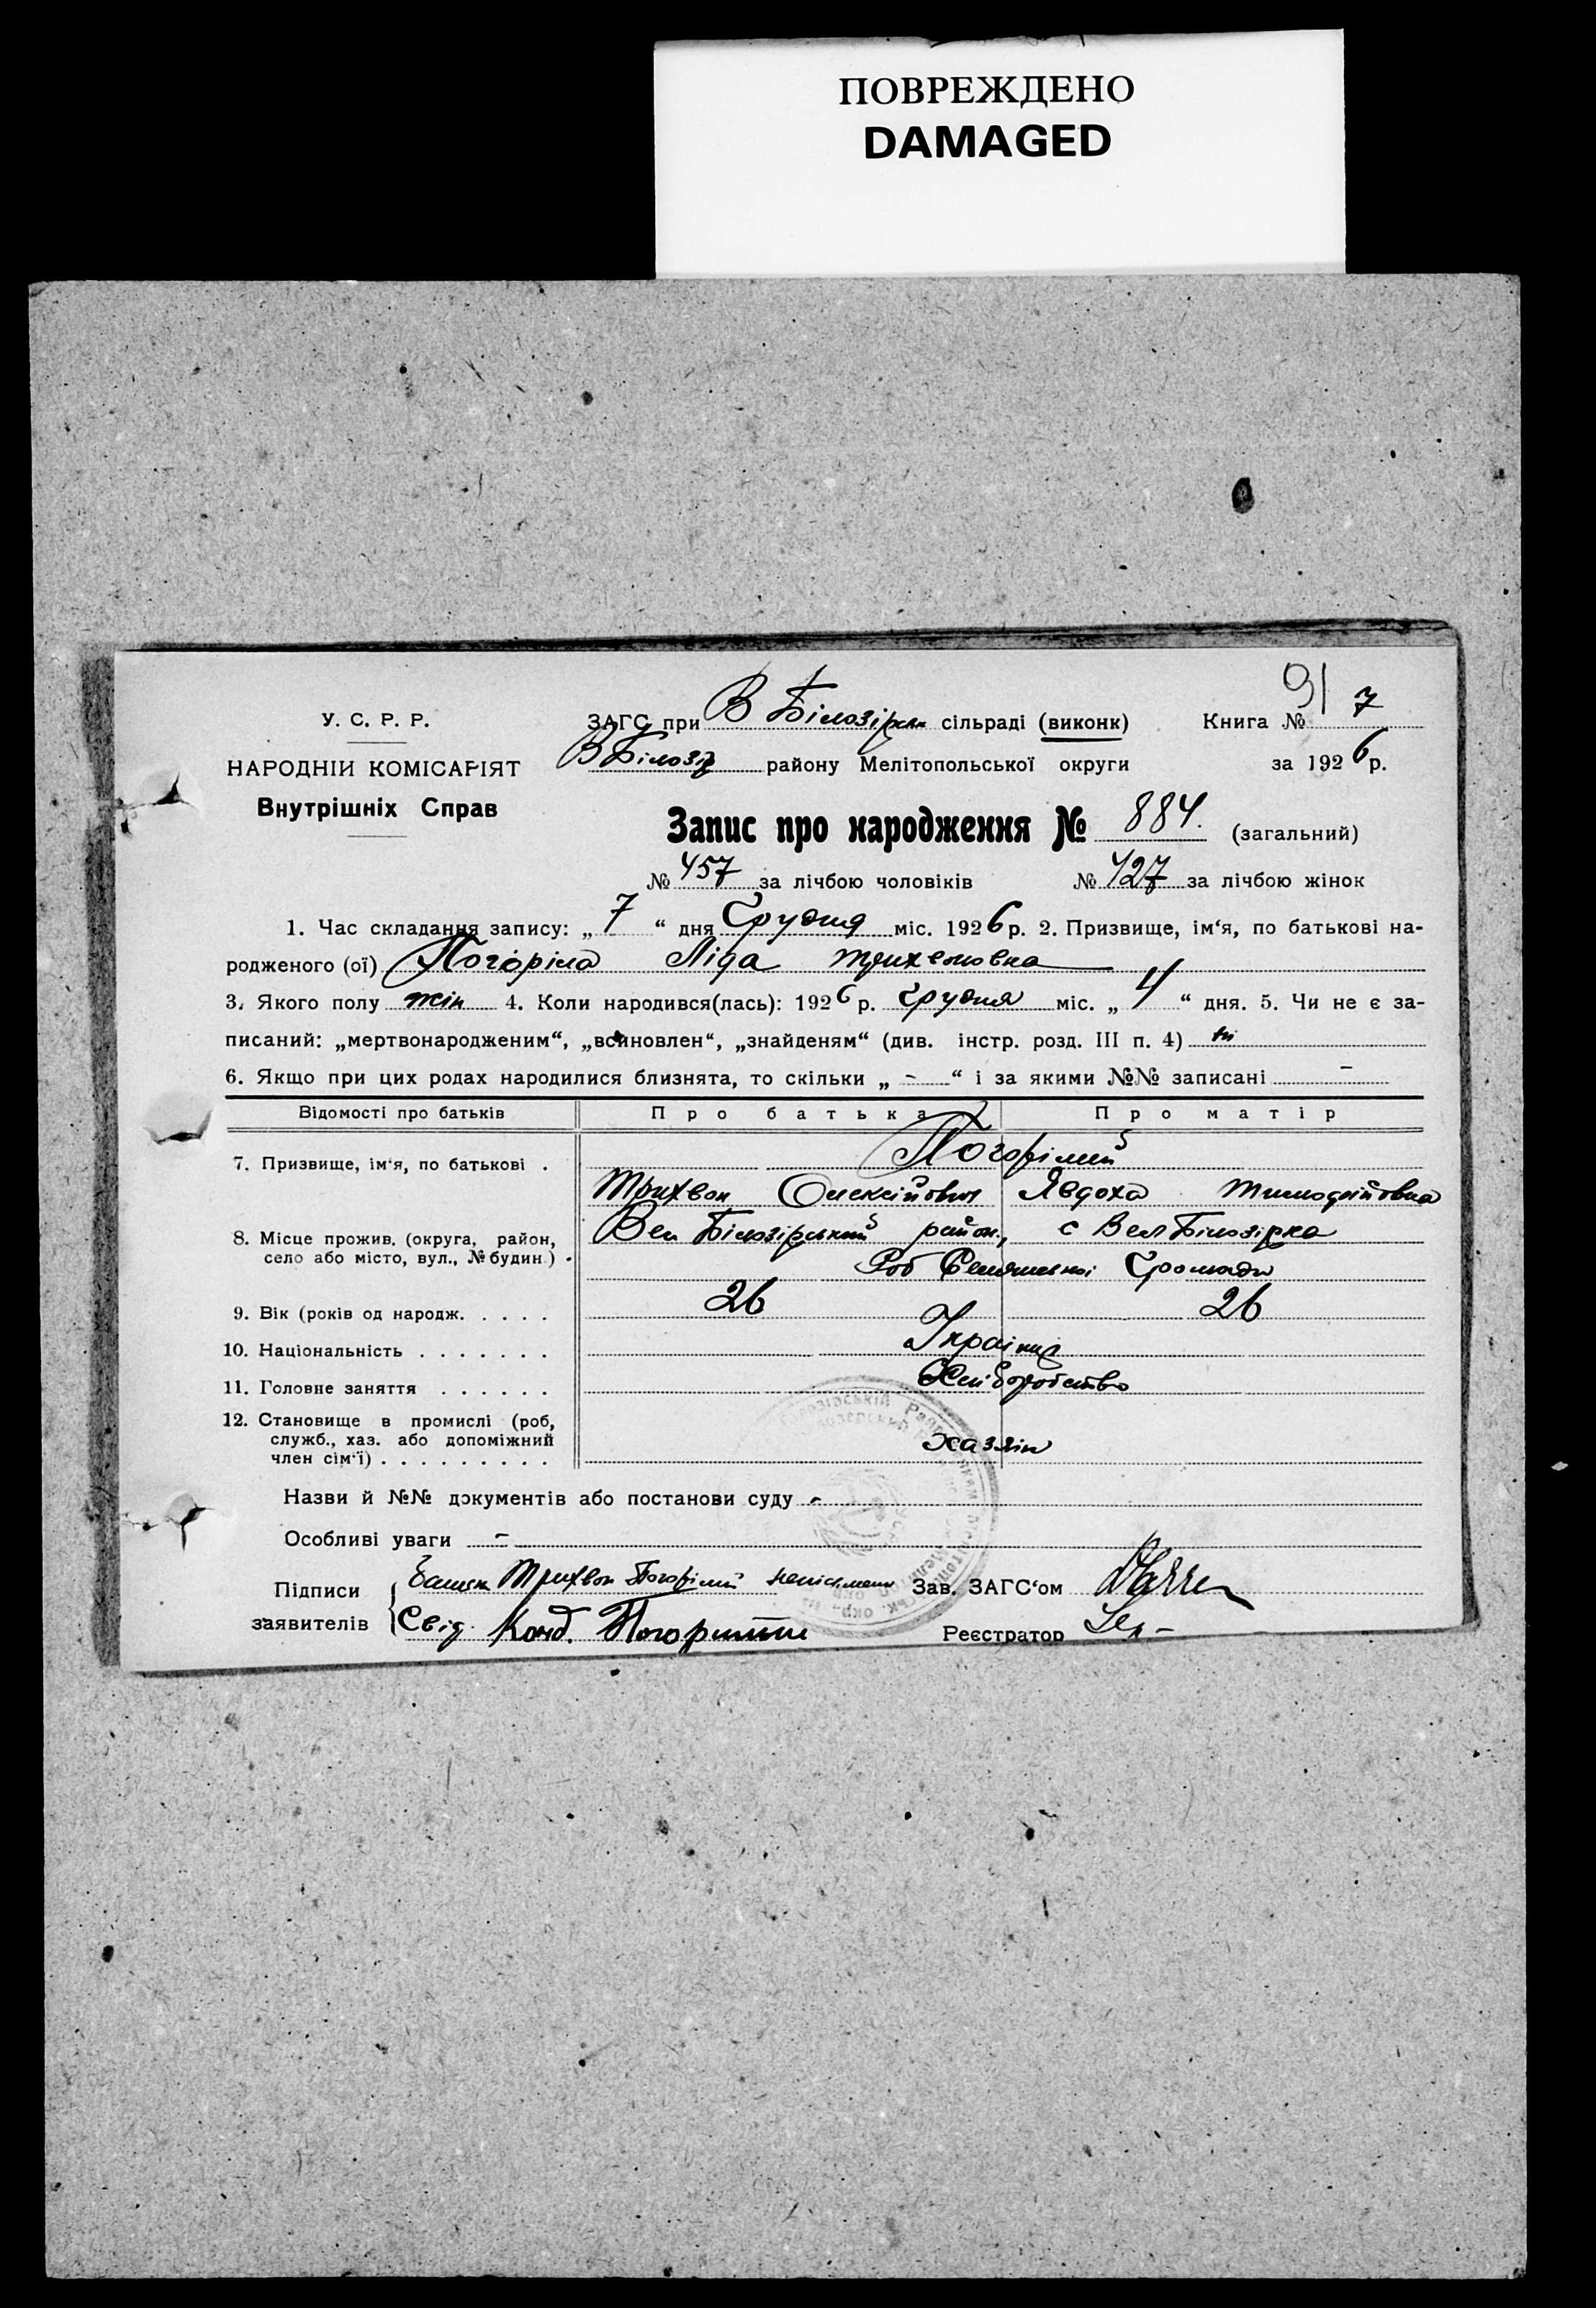 ПОВРЕЖДЕНО
DAMAGED
91 7
У. С. Р. Р.
ЗАГС при В Білозірск сільраді (виконк) Книга №
НАРОДНІЙ КОМІСАРІЯТ
В Білозір району Мелітопольської округи за 1926 р.
Внутрішніх Справ
Запис про народження № 884. (загальний)
№ 457 за лічбою чоловіків № 427 за лічбою жінок
1. Час складання запису: „ 7 “ дня Грудня міс. 1926 р. 2. Призвище, ім‘я, по батькові на-
родженого (ої) Погоріла Ліда Трихвоновна
3. Якого полу жін 4. Коли народився(лась): 1926 р. Грудня міс. „ 4 “ дня. 5. Чи не є за-
писаний: „мертвонародженим“, „всиновлен“, „знайденям“ (див. інстр. розд. III п. 4) ні
6. Якщо при цих родах народилися близнята, то скільки „ - “ і за якими №№ записані -
Відомості про батьків Про батька Про матір
7. Призвище, ім‘я, по батькові . Погорілий
Трихвон Олексійович Явдоха Тимофійовна
8. Місце прожив. (округа, район, Вел Білозірський район, с Вел Білозірка
село або місто, вул., № будин.) .
Громади
9. Вік (років од народж. . . . . 26 26
10. Національність . . . . . . . Українці
11. Головне заняття . . . . . . Хліборобство
12. Становище в промислі (роб,
служб., хаз. або допоміжний хазяїн
член сім‘ї) . . . . . . . . .
Назви й №№ документів або постанови суду -
Особливі уваги -
Підписи Батьки Трихвон Погорілий неписьмен Зав. ЗАГС‘ом
заявителів Свід. Конд. Погорилий Реєстратор